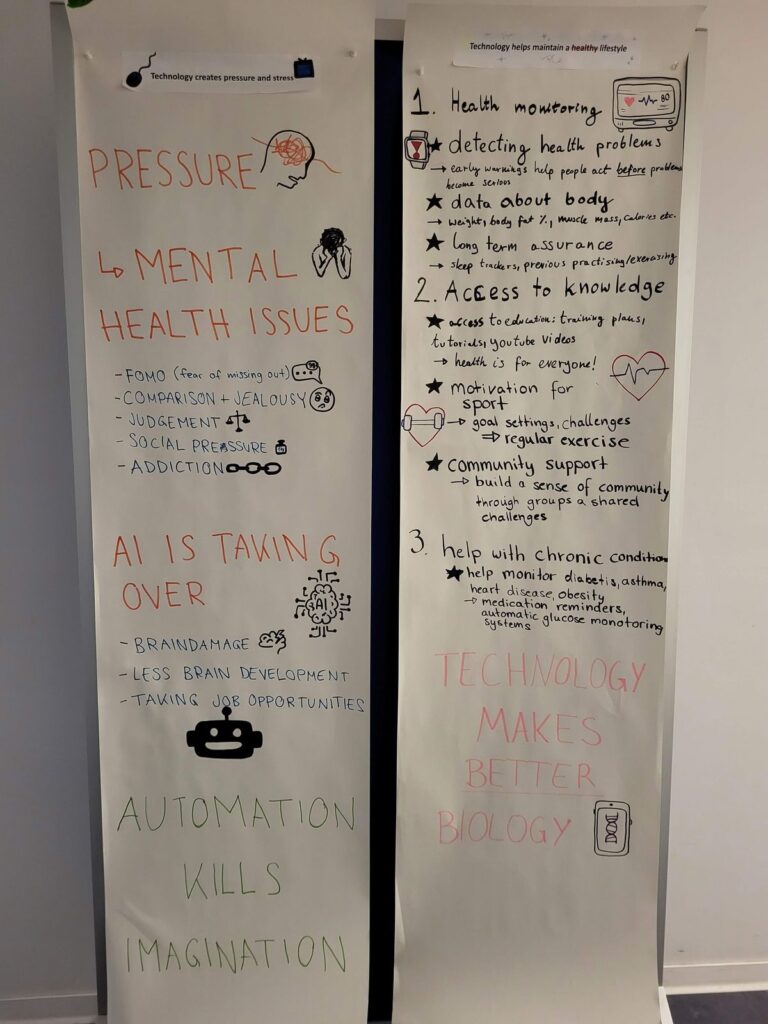 Technology creates pressure and stress
PRESSURE
↳ MENTAL
HEALTH ISSUES
- FOMO (fear of missing out)
- COMPARISON + JEALOUSY
- JUDGEMENT
- SOCIAL PRESSURE
- ADDICTION
AI IS TAKING
OVER
AI
- BRAINDAMAGE
- LESS BRAIN DEVELOPMENT
- TAKING JOB OPPORTUNITIES
AUTOMATION
KILLS
IMAGINATION
Technology helps maintain a healthy lifestyle
1. Health monitoring
80
★ detecting health problems
→ early warnings help people act before problems
become serious
★ data about body
→ weight, body fat %, muscle mass, calories etc.
★ long term assurance
→ sleep trackers, previous practising/exercising
2. Access to knowledge
★ access to education: training plans,
tutorials, youtube videos
→ health is for everyone!
★ motivation for
sport
→ goal settings, challenges
⇒ regular exercise
★ community support
→ build a sense of community
through groups a shared
challenges
3. help with chronic condition
★ help monitor diabetis, asthma,
heart disease, obesity
→ medication reminders,
automatic glucose monotoring
systems
TECHNOLOGY
MAKES
BETTER
BIOLOGY